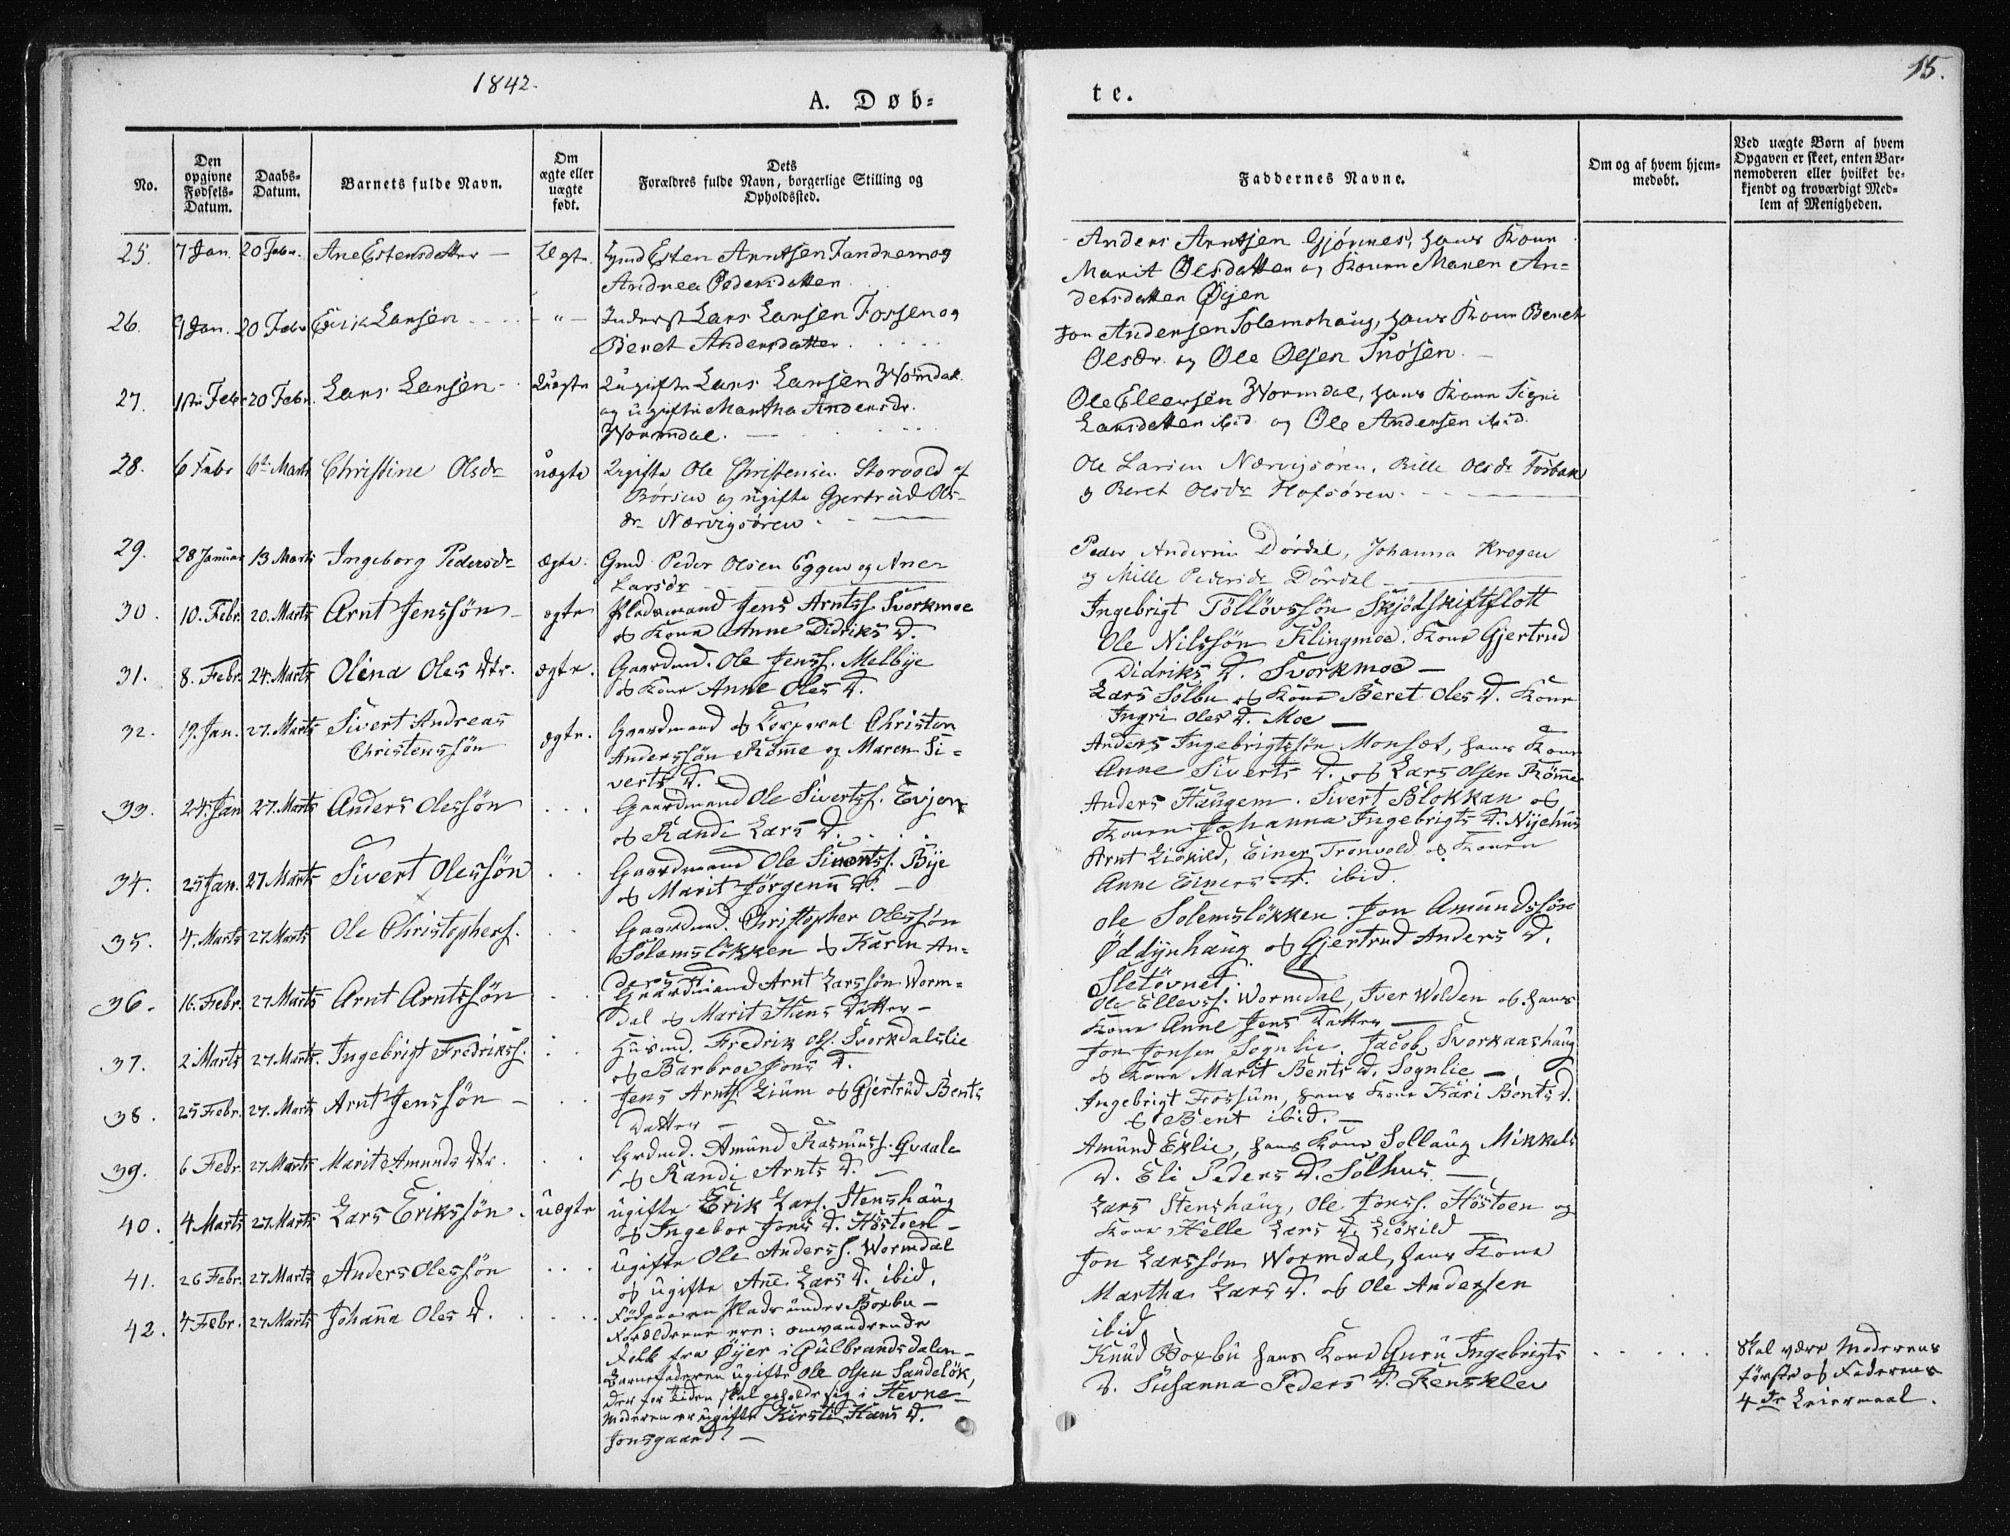 1842.
15.
A. Døb=
te.
No.
Den opgivne Fødsels-Datum.
Daabs-Datum.
Barnets fulde Navn.
Om ægte eller uægte født.
Dets Forældres fulde Navn, borgerlige Stilling og Opholdssted.
Faddernes Navne.
Om og af hvem hjemmedøbt.
Ved uægte Børn af hvem Opgaven er skeet, enten Barnemoderen eller hvilket bekjendt og troværdigt Medlem af Menigheden.
25. 7 Jan. 20 Febr. Ane Estensdatter — Ægte
Gmd Esten Arntsen Fandrem og
Andrea Pedersdatter
Anders Arntsen Gjønnes, hans Kone
Marit Olsdatter og Konen Maren An=
dersdatter Øyen
26. 9 Jan. 20 Febr Erik Larsen — " —
Inderst Lars Larsen Fossen og
Beret Andersdatter
Jon Andersen Solemshaug, hans Kone Beret
Olsdr. og Ole Olsen Snøsen
27. 1ste Febr 20 Febr. Lars Larsen Uægte
Ugifte Lars Larsen Wormdal
og ugifte Martha Andersdr.
Wormdal.
Ole Ellevsen Wormdal, hans Kone Signi
Larsdatter ibid og Ole Andersen ibid.
28. 6 Febr 6te Marts Christine Olsdr uægte
Ugifte Ole Christensen Storvold af
Børsen og ugifte Gjertrud Ols=
dr Nærvigsøren
Ole Larsen Nærvigsøren, Rille Olsdr Forbak
og Beret Olsdr Hofsøren
29. 28 Januar 13 Marts Ingeborg Pedersdr ægte.
Gmd Peder Olsen Eggen og Ane
Larsdr
Peder Andersen Dørdal, Johanna Krogen
og Mille Pedersdr Dørdal
30. 10. Febr. 20. Marts Arnt Jenssøn ægte
Pladsmand Jens Arntss. Svorkmoe
og Kone Anne Didriks D.
Ingebrigt Tøllovssøn Skjødskiftflott
Ole Nilssøn Klingmoe. Kone Gjertrud
Didriks D. Svorkmoe —
31. 8. Febr. 24. Marts Olina Oles Dtr. ægte.
Gaardmd. Ole Jenss. Melbye
og Kone Anne Oles D.
Lars Solbu og Kone Beret Oles D. Kone
Ingri Oles D. Moe —
32. 19. Jan. 27. Marts Sivert Andreas
Christenssøn ægte.
Gaardmand og Corporal Christen
Anderssøn Rømme og Maren Si=
verts D.
Anders Ingebrigtssøn Monset, hans Kone
Anne Siverts D. og Lars Olsen Rømme
33. 24. Jan 27. Marts Anders Olessøn
Gaardmand Ole Sivertss. Evjen
og Randi Lars D.
Anders Haugem. Sivert Blokkan og
Konen Johanna Ingebrigts D. Nyehus
34. 25 Jan. 27 Marts Sivert Olessøn
Gaardmand Ole Sivertss. Bye
og Marit Jørgens D. —
Arnt Liøkild, Einer Tronvold og Konen
Anne Einers D. ibid.
35. 4. Marts 27 Marts Ole Christophers.
Gaardmd. Christopher Olessøn
Solemsløkken og Karen An=
ders D.
Ole Solemsløkken. Jon Amundssøn
Øddynhaug og Gjertrud Anders D.
Sletøvnet.
36. 16. Febr. 27 Marts Arnt Arntssøn
Gaardmand Arnt Larssøn Worm=
dal og Marit Hans Datter —
Ole Ellevss. Wormdal, Iver Wolden og hans
Kone Anne Jens Datter
37. 2 Marts 27. Marts. Ingebrigt Fredrikss.
Husmd. Fredrik Ols. Svorkdalslie
og Barbroe Jons D.
Jon Jonsen Sognlie. Jacob Svorkaashaug
og Kone Marit Bents D. Sognlie —
38. 25 Febr. 27. Marts Arnt Jenssøn —
Jens Arnts. Lium og Gjertrud Bents
Datter —
Ingebrigt Fossum, hans Kone Kari Bents D.
og Bent ibid. —
39. 6 Febr. 27 Marts Marit Amunds Dtr.
Grdmd. Amund Rasmuss. Qvaale
og Randi Arnts D. —
Amund Eklie, hans Kone Sollaug Mikkels
D. Eli Peders D. Solhus —
40. 4 Marts 27. Marts Lars Erikssøn. uægte
ugifte Erik Lars. Stenshaug
og Ingebor Jons D. Høstoen —
Lars Stenshaug, Ole Jonss. Høstoen og
Kone Helle Lars D. Liøkild
41. 26 Febr. 27 Marts Anders Olessøn
ugifte Ole Anderss. Wormdal
og ugifte Ane Lars D. ibid.
Jon Larssøn Wormdal, hans Kone
Martha Lars D. og Ole Andersen
ibid
42. 4 Febr. 27 Marts Johanna Oles D.
Fød paa en Plads under Boxbu —
Forældrene ere: omvandrende
Folk fra Øyer i Gulbrandsdalen —
Barnefaderen ugifte Ole Olsen Sandeløk,
der for tiden skal opholde sig i Hevne —
Moderen er ugifte Kirsti Hans D.
Jonsgaard —
Knud Boxbu hans Kone Guru Ingebrigts
D. Susanna Peders D. Kensklev
Skal være Moderens
første og Faderens
4de Leiermaal.